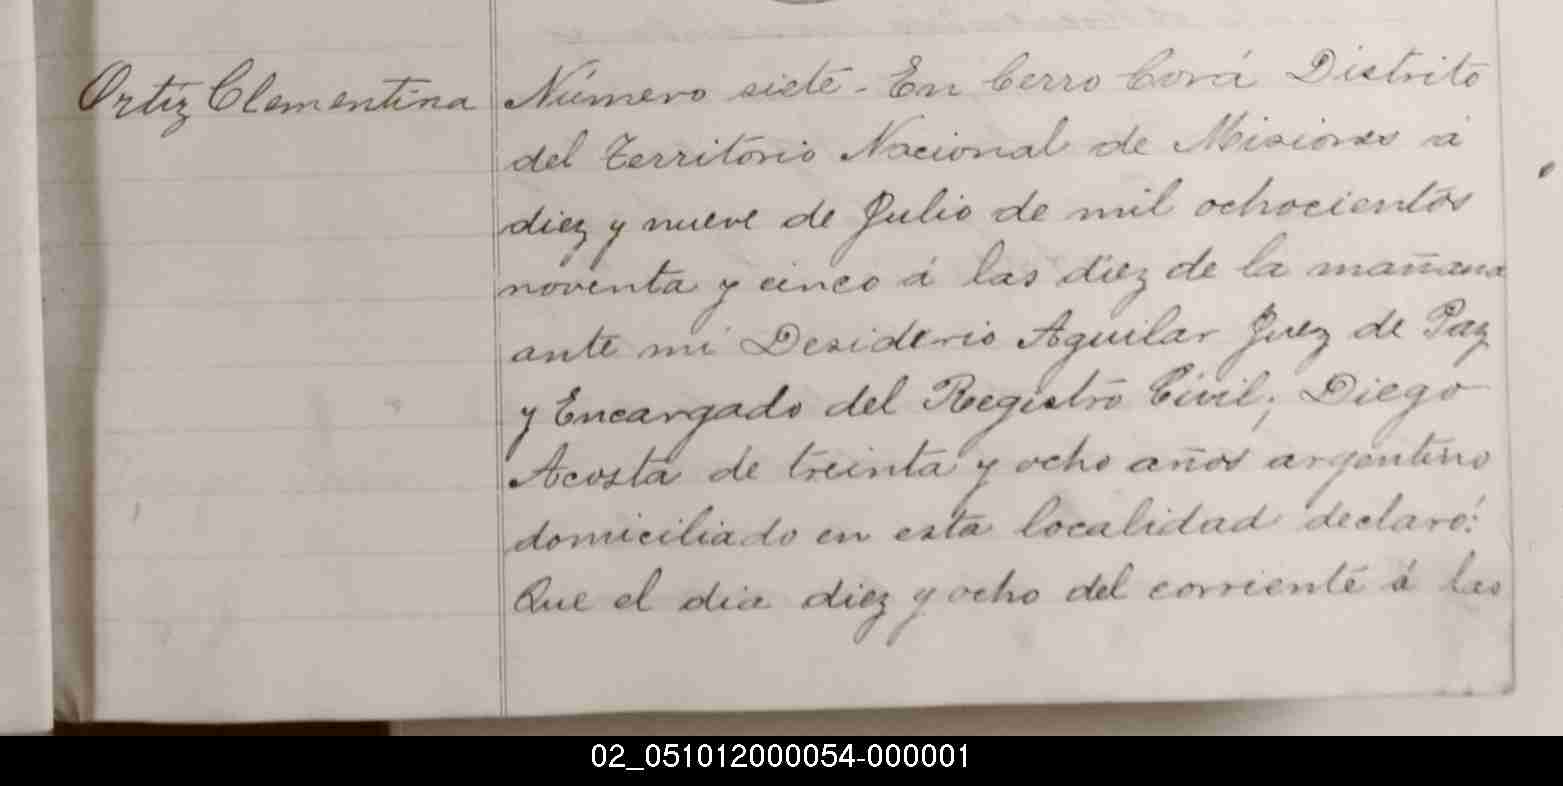 Ortiz Clementina
Número siete - En Cerro Corá Distrito
del Territorio Nacional de Misiones á
diez y nueve de Julio de mil ochocientos
noventa y cinco á las diez de la mañana
ante mi Desiderio Aguilar Juez de Paz
y Encargado del Registro Civil; Diego
Acosta de treinta y ocho años argentino
domiciliado en esta localidad declaró:
Que el dia diez y ocho del corriente á las
02_051012000054-000001